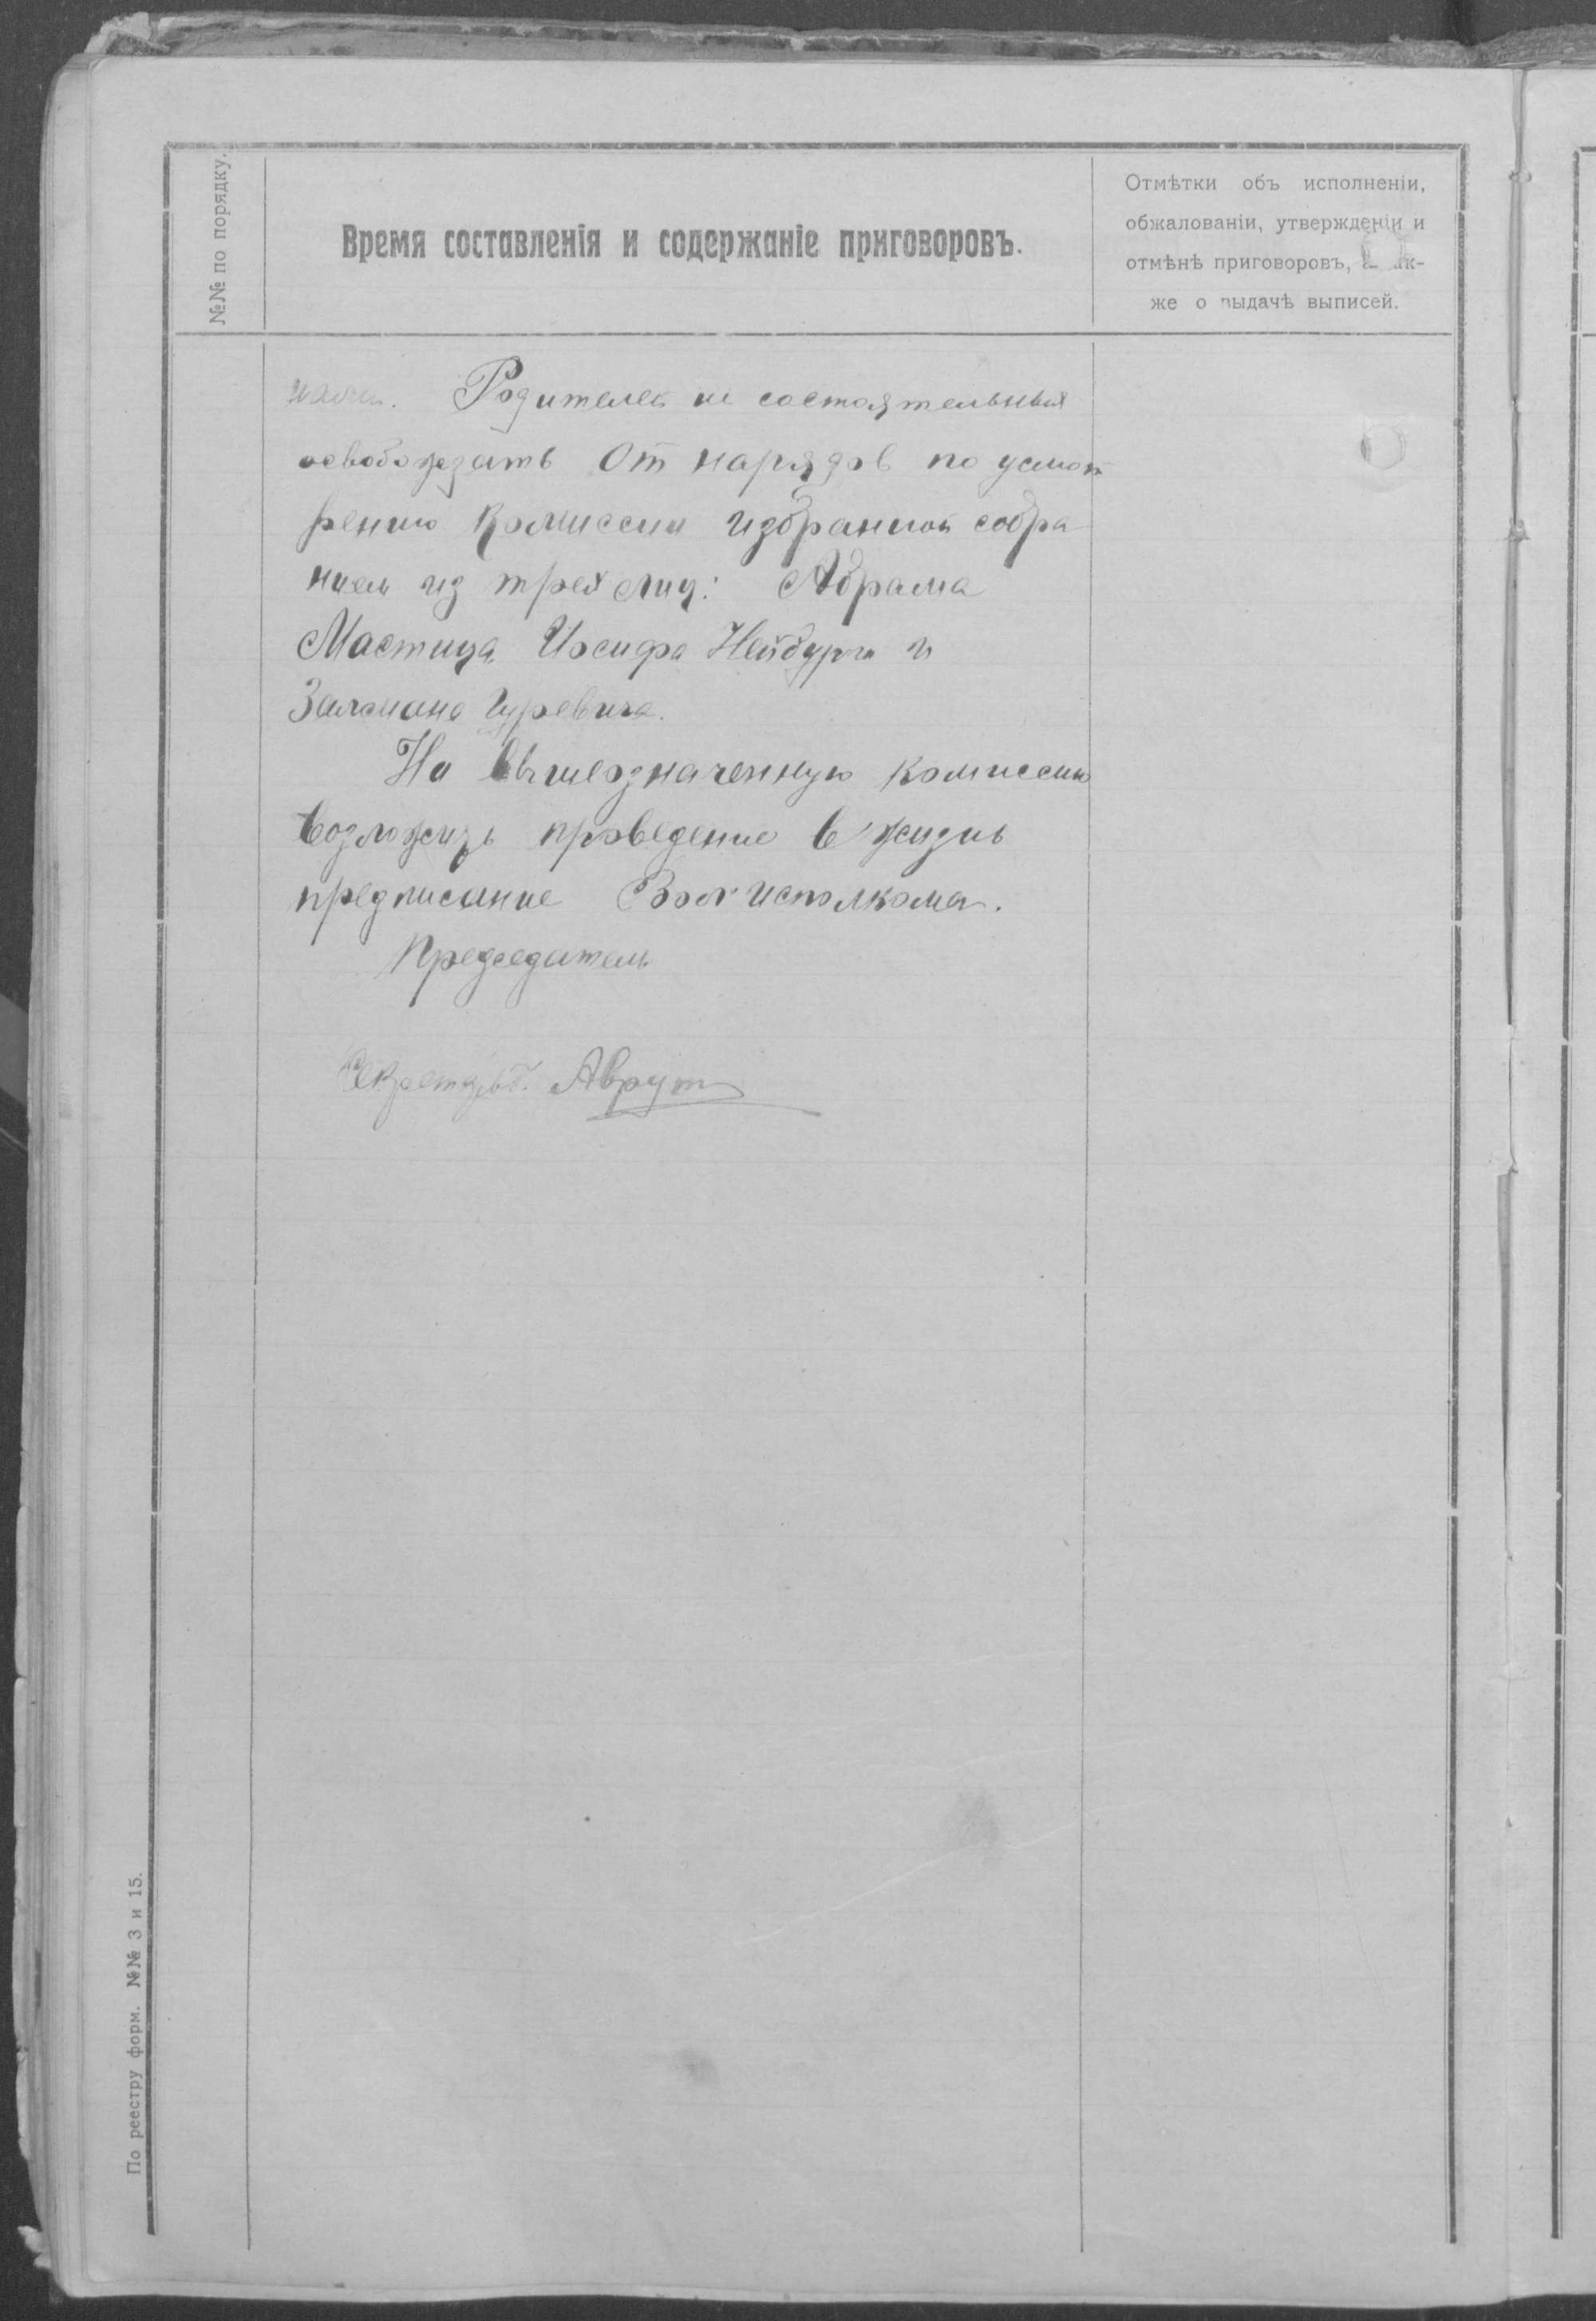 №№ по порядку.
Время составленія и содержаніе приговоровъ.
Отмѣтки объ исполненіи,
обжалованіи, утвержденіи и
отмѣнѣ приговоровъ, а так-
же о выдачѣ выписей.
Родителей не состоятельных
освобождать от нарядов по усмот
рению комиссии избранной собра
нием из трех лиц: Абрама
Мастица, Иосифа Нейбурга и
Залмана Гуревича.
На вышеозначенную комиссию
возложить проведение в жизнь
предписание Волисполкома.
Председатель
Секретарь Аврут
По реестру форм. №№ 3 и 15.